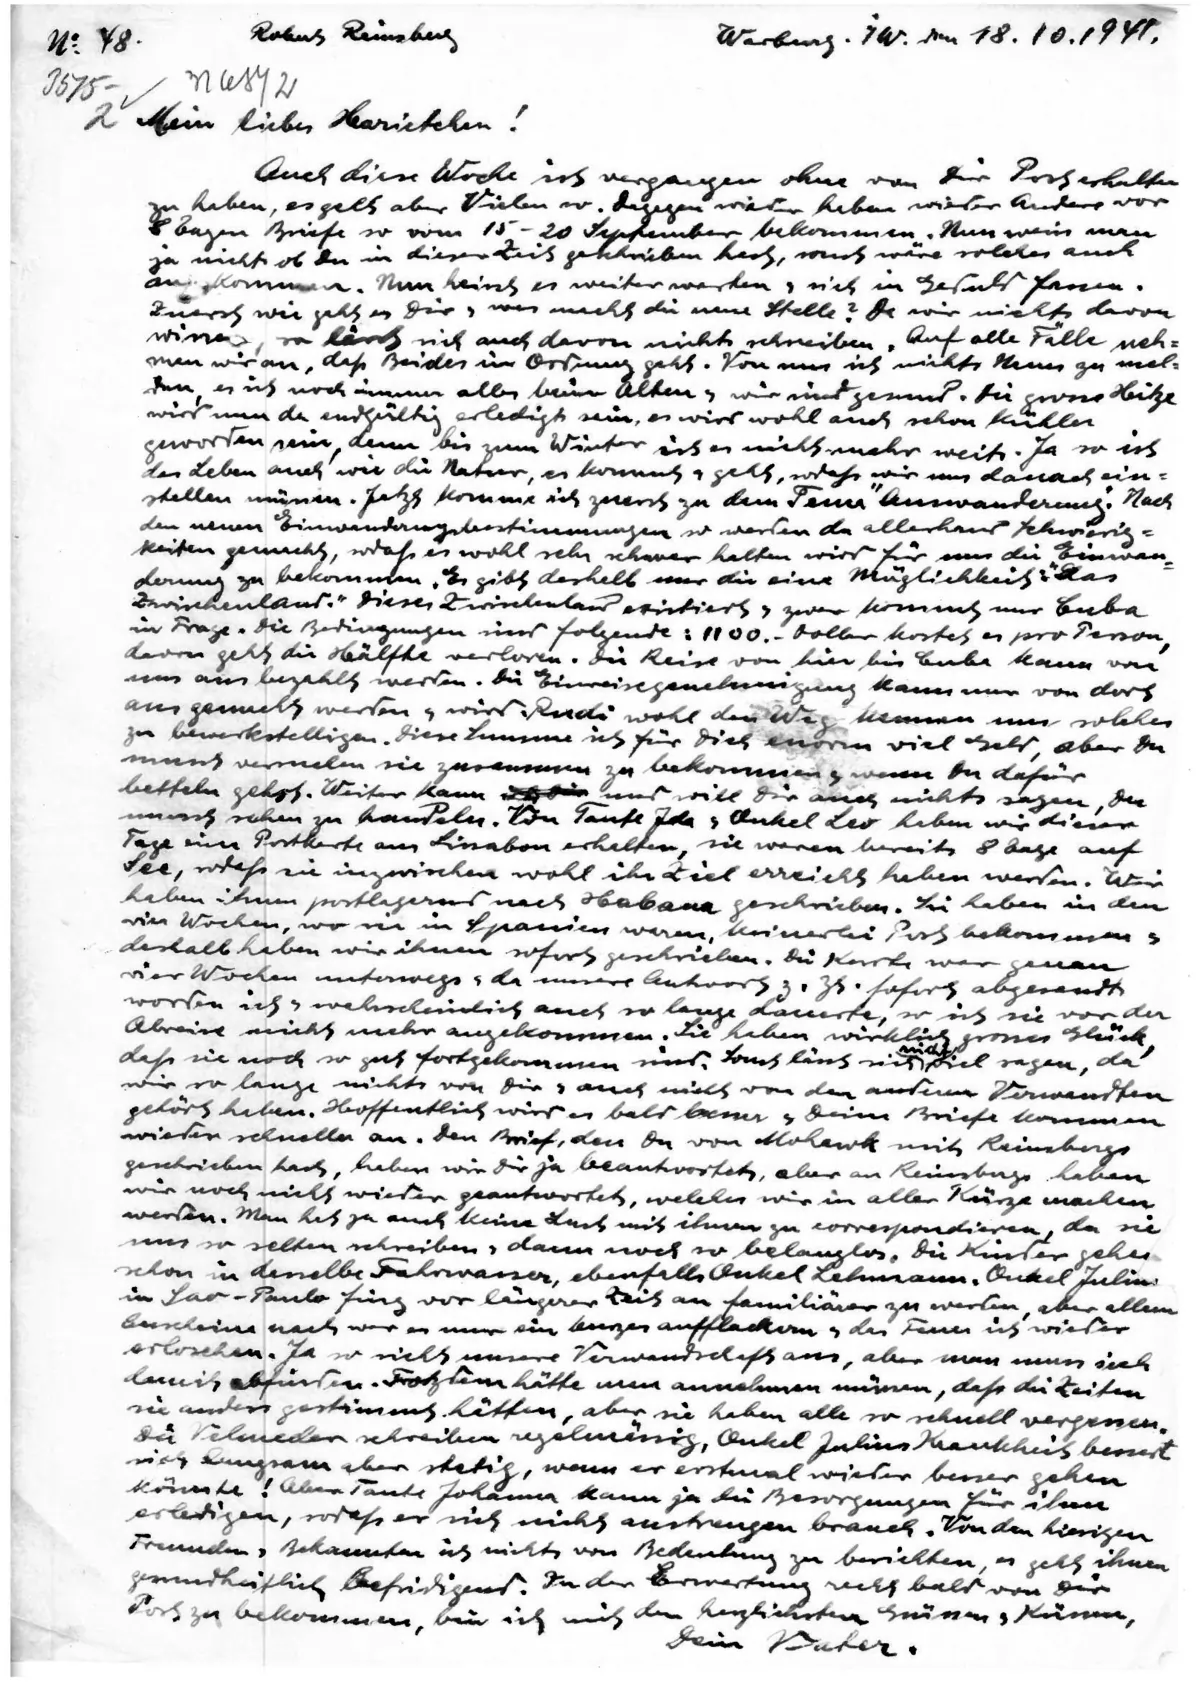 No. 48. Robert Reinsberg Warburg. i W. den 18.10.1941.
3575-
2 Mein liebes Hariettchen!
Auch diese Woche ist vergangen ohne von Dir Post erhalten
zu haben, es geht aber Vielen so. Dagegen wieder haben wieder Andere vor
8 Tagen Briefe so vom 15-20 September bekommen. Nun weis man
ja nicht ob Du in dieser Zeit geschrieben hast, sonst wäre solches auch
angekommen. Nun heisst es weiter warten u sich in Geduld fassen.
Zuerst wie geht es Dir u was macht die neue Stelle? Da wir nichts davon
wissen, so lässt sich auch davon nichts schreiben. Auf alle Fälle neh=
men wir an, dass Beides in Ordnung geht. Von uns ist nichts Neues zu mel=
den, es ist noch immer alles beim Alten u wir sind gesund. Die grosse Hitze
wird nun da endgültig erledigt sein, es wird wohl auch schon kühler
geworden sein, denn bis zum Winter ist es nicht mehr weit. Ja so ist
das Leben auch wie die Natur, es kommt u geht, sodass wir uns danach ein=
stellen müssen. Jetzt komme ich zuerst zu dem Tema "Auswanderung". Nach
den neuen Einwanderungsbestimmungen so werden da allerhand Schwierig=
keiten gemacht, sodass es wohl sehr schwer halten wird für uns die Einwan=
derung zu bekommen. Es gibt deshalb nur die eine Möglichkeit: "Das
Zwischenland." Dieses Zwischenland existiert u zwar kommt nur Cuba
in Frage. Die Bedingungen sind folgende: 1100.- Doller kostet es pro Person,
davon geht die Hälfte verloren. Die Reise von hier bis Cuba kann von
uns aus bezahlt werden. Die Einreisegenehmigung kann nur von dort
aus gemacht werden u wird Rudi wohl den Weg kennen um solches
zu bewerkstelligen. Diese Summe ist für Dich enorm viel Geld, aber Du
musst versuchen sie zusammen zu bekommen u wenn Du dafür
betteln gehst. Weiter kann und will Dir auch nichts sagen, Du
musst sehen zu handeln. Von Tante Ida u Onkel Leo haben wir dieser
Tage eine Postkarte aus Lissabon erhalten, sie waren bereits 8 Tage auf
See, sodass sie inzwischen wohl ihr Ziel erreicht haben werden. Wir
haben ihnen postlagernd nach Habana geschrieben. Sie haben in den
vier Wochen, wo sie in Spanien waren, keinerlei Post bekommen u
deshalb haben wir ihnen sofort geschrieben. Die Karte war genau
vier Wochen unterwegs u da unsere Antwort z. Zt. sofort abgesandt
worden ist u wahrscheinlich auch so lange dauerte, so ist sie vor der
Abreise nicht mehr angekommen. Sie haben wirklich grosses Glück,
dass sie noch so gut fortgekommen sind. Sonst lässt sich nicht viel sagen, da
wir so lange nichts von Dir u auch nicht von den anderen Verwandten
gehört haben. Hoffentlich wird es bald besser u Deine Briefe kommen
wieder schneller an. Den Brief, den Du von Mohawk mit Reinsbergs
geschrieben hast, haben wir Dir ja beantwortet, aber an Reinsbergs haben
wir noch nicht wieder geantwortet, welches wir in aller Kürze machen
werden. Man hat ja auch keine Lust mit ihnen zu correspondieren, da sie
uns so selten schreiben u dann noch so belanglos. Die Kinder gehen
schon in dasselbe Fahrwasser, ebenfalls Onkel Lehmann. Onkel Julius
in Sao-Paulo fing vor längerer Zeit an familiärer zu werden, aber allem
Anscheine nach war es nur ein kurzes aufflackern u das Feuer ist wieder
erloschen. Ja so sieht unsere Verwandschaft aus, aber man muss sich
damit abfinden. Trotzdem hätte man annehmen müssen, dass die Zeiten
sie anders gestimmt hätten, aber sie haben alle so schnell vergessen.
Die Velmeder schreiben regelmässig, Onkel Julius Krankheit bessert
sich langsam aber stetig, wenn er erstmal wieder besser gehen
könnte! Aber Tante Johanna kann ja die Besorgungen für ihn
erledigen, sodass er sich nicht anstrengen brauch. Von den hiesigen
Freunden u Bekannten ist nichts von Bedeutung zu berichten, es geht ihnen
gesundheitlich befridigend. In der Erwartung recht bald von Dir
Post zu bekommen, bin ich mit den herzlichsten Grüssen u Küssen,
Dein Vater.